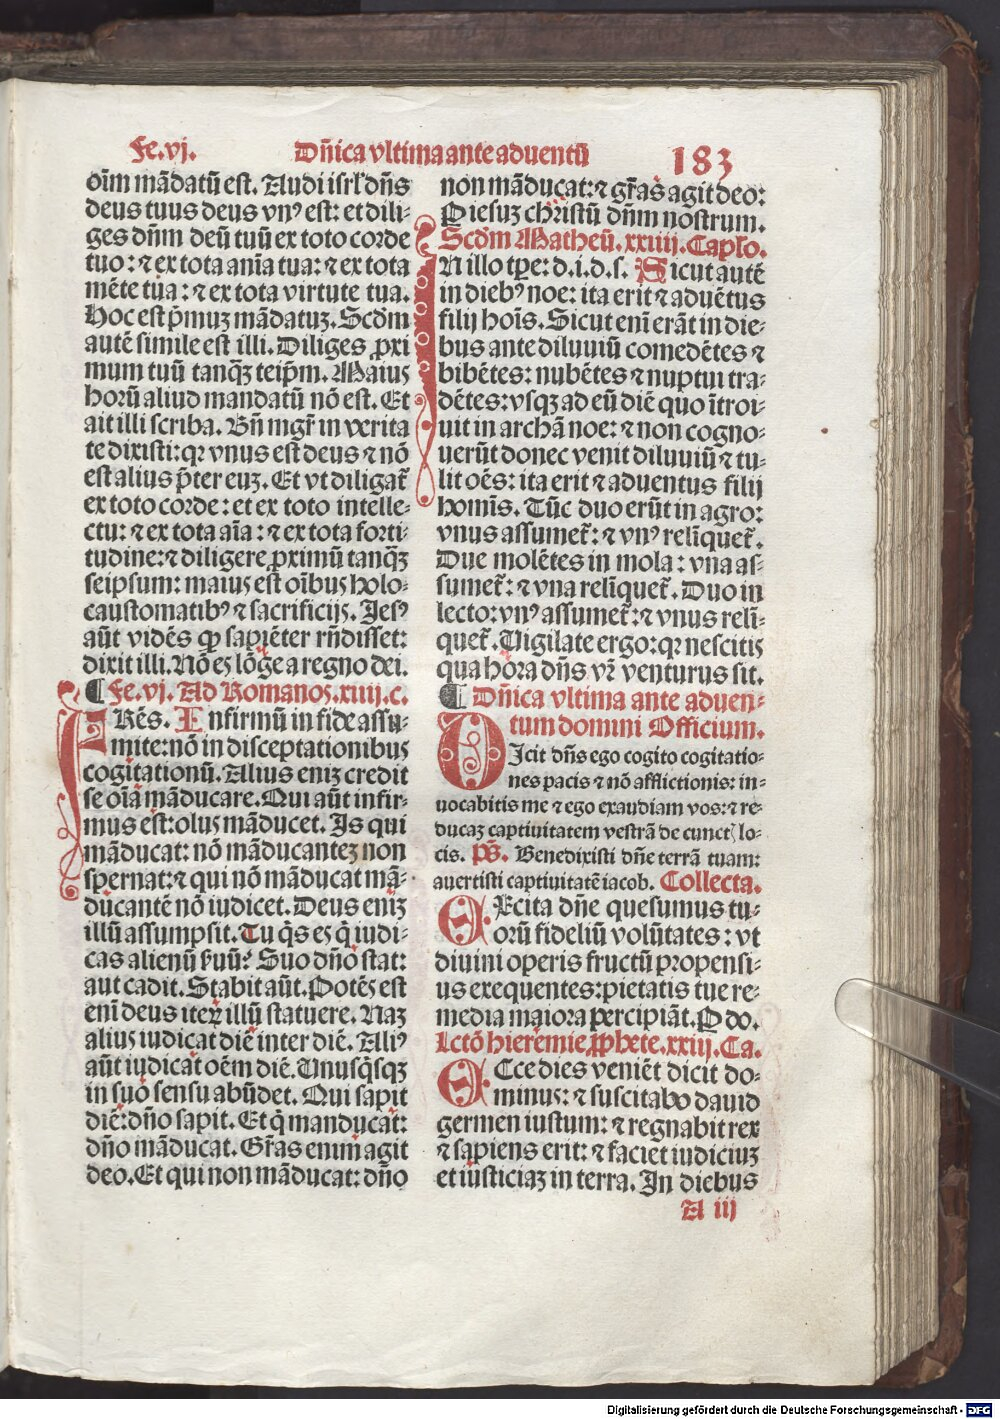 Fe.vj.
Dñica vltima ante aduentū
183
oīm mādatū est. Audi isrl' dñs
deus tuus deus vnꝰ est: et dili-
ges dñm deū tuū ex toto corde
tuo: ⁊ ex tota anīa tua: ⁊ ex tota
mēte tua: ⁊ ex tota virtute tua.
Hoc est p̄muꝫ mādatuꝫ. Scd̓m
autē simile est illi. Diliges ꝓxi
mum tuū tanqꝫ̄ teip̄m. Maius
horū aliud mandatū nō est. Et
ait illi scriba. Bn̄ mgr̄ in verita
te dixisti: qꝛ vnus est deus ⁊ nō
est alius p̄ter euꝫ. Et vt diligat̃
ex toto corde: et ex toto intelle-
ctu: ⁊ ex tota aīa: ⁊ ex tota forti-
tudine: ⁊ diligere ꝓximū tanqꝫ̄
seipsum: maius est oībus holo-
caustomatibꝰ ⁊ sacrificijs. Jesꝰ
aūt vidēs ꝙ sapiēter rn̄disset:
dixit illi. Nō es lōge a regno dei.
¶ Fe. vj. Ad Romanos. xiiij. c.
FRēs. Infirmū in fide assu-
mite: nō in disceptationibus
cogitationū. Alius eniꝫ credit
se oīa māducare. Qui aūt infir-
mus est: olus māducet. Is qui
māducat: nō māducanteꝫ non
spernat: ⁊ qui nō māducat mā-
ducantē nō iudicet. Deus eniꝫ
illū assumpsit. Tu q̄s es q̄ iudi-
cas alienū ẜuū? Suo dño stat:
aut cadit. Stabit aūt. Potēs est
enī deus iteꝝ illū statuere. Naꝫ
alius iudicat diē inter diē. Aliꝰ
aūt iudicat oēm diē. Unusq̄sqꝫ
in suo sensu abūdet. Qui sapit
diē: dño sapit. Et q̄ manducat:
dño māducat. Gr̄as enim agit
deo. Et qui non māducat: dño
non māducat: ⁊ gr̄as agit deo:
P iesuꝫ christū dñm nostrum.
Scd̓m Matheū. xxiiij. Caplo.
IN illo tp̄e: d. i. d. s. Sicut autē
in diebꝰ noe: ita erit ⁊ aduētus
filij hoīs. Sicut enī erāt in die-
bus ante diluuiū comedētes ⁊
bibētes: nubētes ⁊ nuptui tra-
dētes: vsqꝫ ad eū diē quo ītroi-
uit in archā noe: ⁊ non cogno-
uerūt donec venit diluuiū ⁊ tu-
lit oēs: ita erit ⁊ aduentus filij
homīs. Tūc duo erūt in agro:
vnus assumet̃: ⁊ vnꝰ relīquet̃.
Due molētes in mola: vna as-
sumet̃: ⁊ vna relīquet̃. Duo in
lecto: vnꝰ assumet̃: ⁊ vnus relī-
quet̃. Vigilate ergo: qꝛ nescitis
qua hora dñs vr̄ venturus sit.
¶ Dñica vltima ante aduen-
tum domini Officium.
DIcit dñs ego cogito cogitatio-
nes pacis ⁊ nō afflictionis: in-
uocabitis me ⁊ ego exaudiam vos: ⁊ re-
ducaꝫ captiuitatem vestrā de cunctꝭ lo-
cis. Pš. Benedixisti dñe terrā tuam:
auertisti captiuitatē iacob. Collecta.
EXcita dñe quesumus tu-
orū fideliū volūtates: vt
diuini operis fructū propensi-
us exequentes: pietatis tue re-
media maiora ꝑcipiāt. P do.
Lctō hieremie ꝓphete. xxiij. Ca.
ECce dies veniēt dicit do-
minus: ⁊ suscitabo dauid
germen iustum: ⁊ regnabit rex
⁊ sapiens erit: ⁊ faciet iudiciuꝫ
et iusticiaꝫ in terra. In diebus
A iij
Digitalisierung gefördert durch die Deutsche Forschungsgemeinschaft - DFG